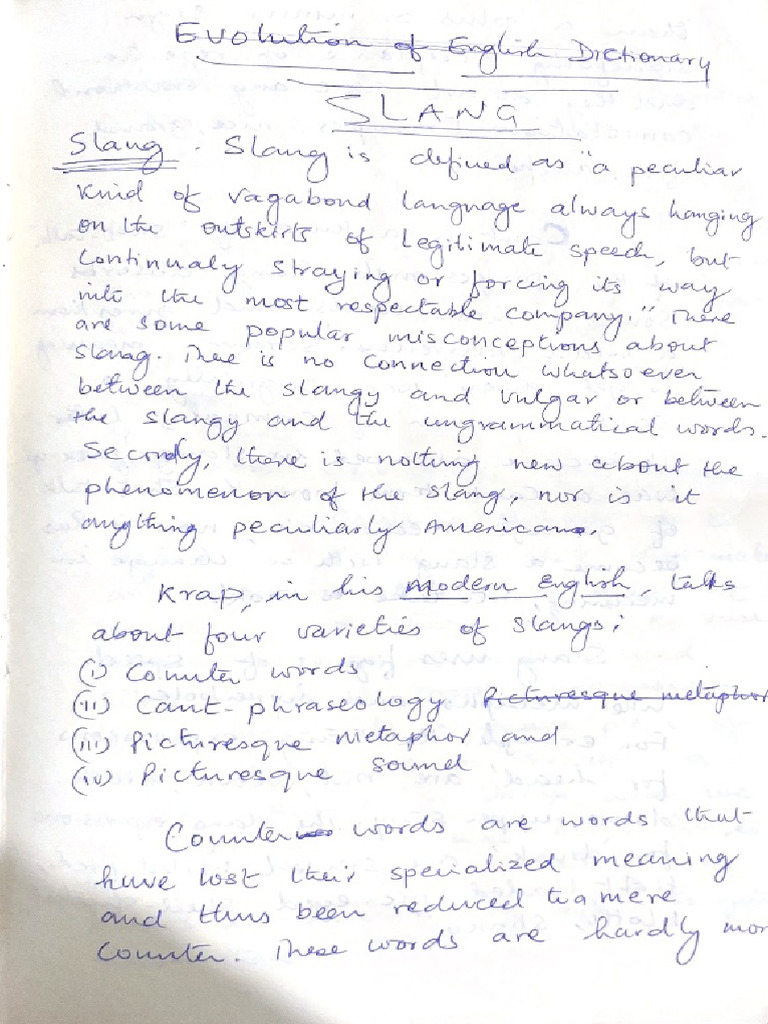 Evolution of English Dictionary
SLANG
Slang - Slang is defined as "a peculiar
Knid of vagabond language always hanging
on the outskirts of legitimate speech, but
Continualy straying or forcing its way
into the most respectable company." There
are some popular misconceptions about
Slanag. There is no connection whatsoever
between the slangy and vulgar or between
the slangy and the ungrammatical words.
Secondy, there is nothing new about the
phenomenon of the Slang, nor is it
anything peculiarly American.
Krap, in his Modern English, talks
about four varieties of Slangs:
(i) Counter words
(ii) Cant-phraseology Picturesque metaphor
(iii) Picturesque Metaphor and
(iv) Picturesque Sound
Counter words are words that
have lost their specialized meaning
and thus been reduced to a mere
Counter. These words are hardly mor